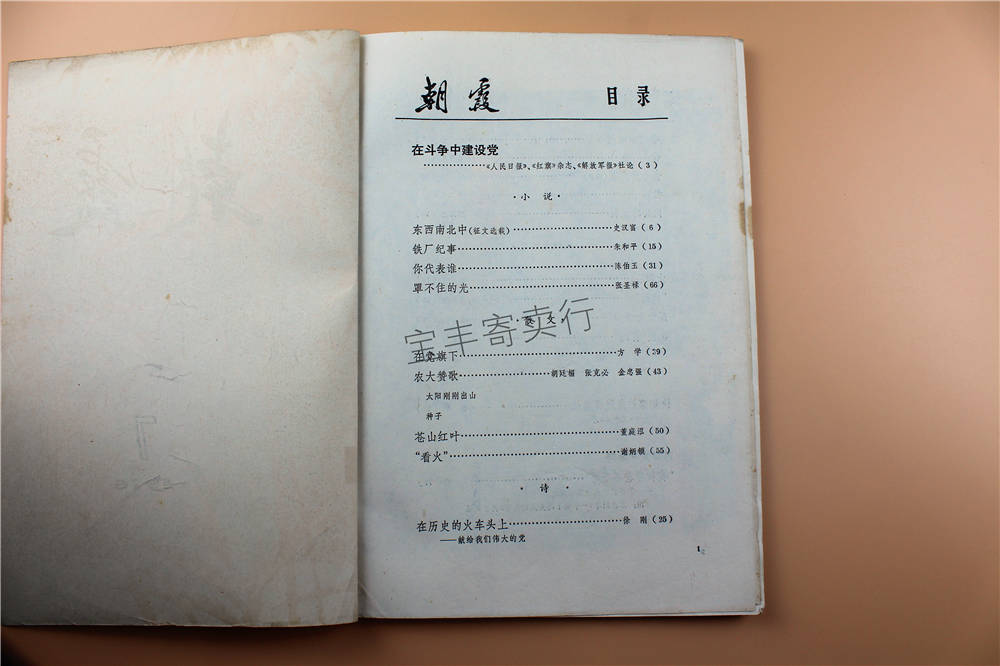 朝霞 目录
在斗争中建设党
《人民日报》、《红旗》杂志、《解放军报》社论(3)
·小 说·
东西南北中(征文选载) 史汉富(6)
铁厂纪事 朱和平(15)
你代表谁 陈伯玉(31)
罩不住的光 张圣禄(66)
宝丰寄卖行
在党旗下 方 学(39)
农大赞歌 胡廷楣 张克必 金忠强(43)
太阳刚刚出山
种子
苍山红叶 董庭泓(50)
“看火” 谢炳锁(55)
·诗·
在历史的火车头上 徐 刚(25)
——献给我们伟大的党
1